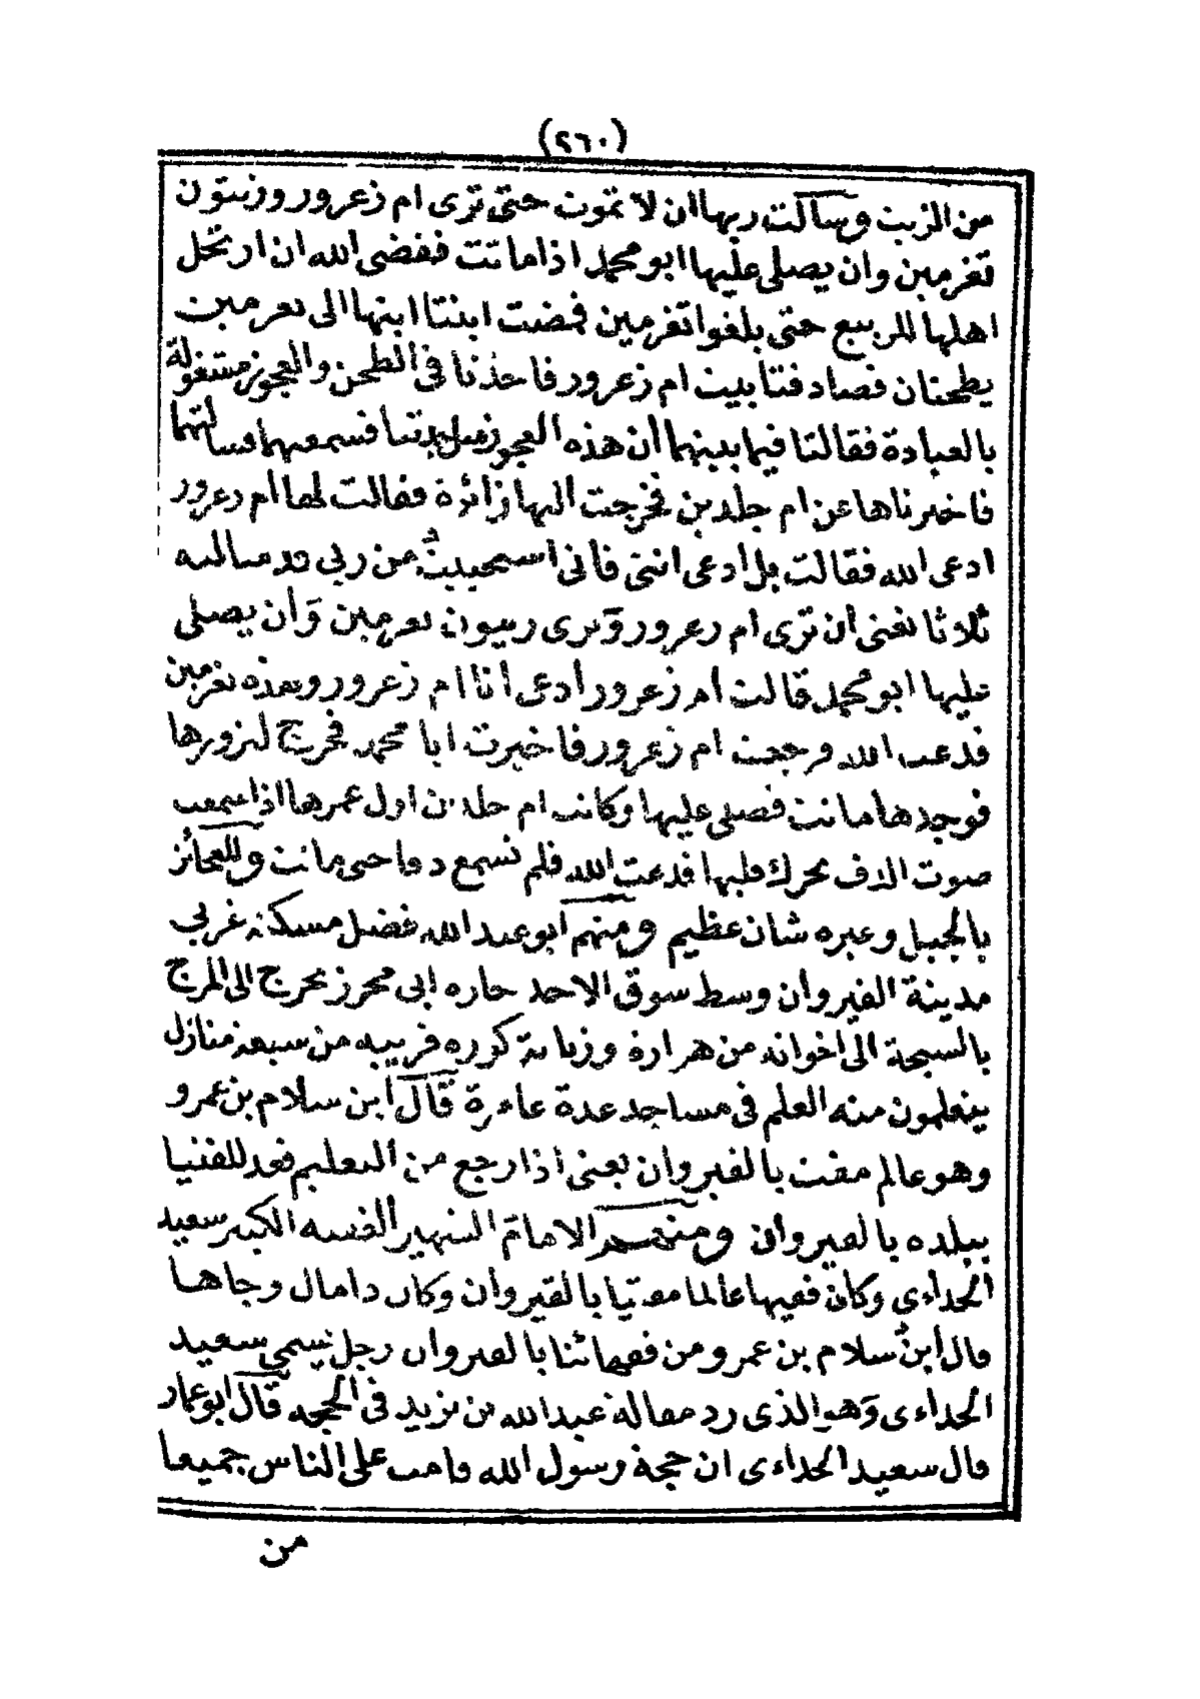 (٢٦٠)
من الزيت وسالت ربها ان لا تموت حتى ترى ام زعرور وزيتون
تغرمين وان يصلى عليها ابو محمد اذا ماتت فقضى الله ان ارتحل
اهلها للربيع حتى بلغوا تغرمين فمضت ابنتا ابنها الى تغرمين
يطحنان فصادفتا بيت ام زعرور فاخذتا فى الطحن والعجوز مشتغولة
بالعبادة فقالتا فيما بينهما ان هذه العجوز مثل جدتنا فسمعهما فسالتهما
فاخبرناها عن ام جلدين فخرجت اليها زائرة فقالت لها ام زعرور
ادعى الله فقالت بل ادعى انتى فانى استحييت من ربى قد سالته
ثلاثا تعنى ان ترى ام زعرور وترى زيتون تغرمين وان يصلى
عليها ابو محمد قالت ام زعرور ادعى انا ام زعرور وهذه تغرمين
فدعت الله ورجعت ام زعرور فاخبرت ابا محمد فخرج لزورها
فوجدها ماتت فصلى عليها وكانت ام جلدين اول عمرها اذا سمعت
صوت الدف تحرك قلبها فدعت الله فلم تسمع دفا حتى ماتت وللعجائز
بالجبل وغيره شان عظيم ومنهم ابو عبد الله فضل مسكنه غربى
مدينة القيروان وسط سوق الاحد حاره ابى محرز يخرج الى المرج
بالسبحة الى اخوانه من هرارة وزناتة كوره قريبه من سبعة منازل
يتعلمون منه العلم فى مساجد عدة عامرة قال ابن سلام بن عمرو
وهو عالم مفت بالقيروان يعنى اذا رجع من التعليم قعد للفتيا
ببلده بالقيروان ومنهم الامام الشهير الفقيه الكبير سعيد
الحداءى وكان فقيها عالما مفتيا بالقيروان وكان ذا مال وجاها
قال ابن سلام بن عمرو ومن فقهائنا بالقيروان رجل يسمى سعيد
الحداءى وهو الذى رد مقالة عبد الله بن يزيد فى الحجه قال ابو عمار
قال سعيد الحداءى ان حجة رسول الله قامت على الناس جميعا
من